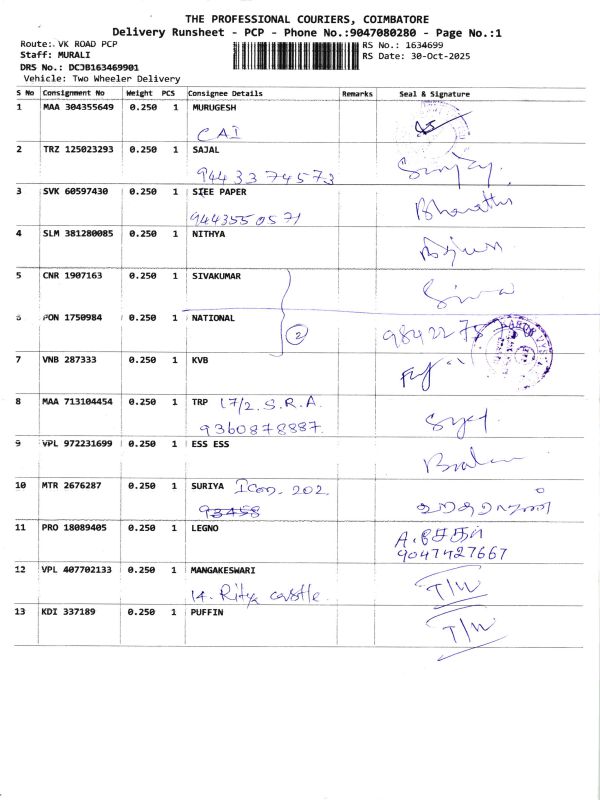 THE PROFESSIONAL COURIERS, COIMBATORE
Delivery Runsheet - PCP - Phone No.:9047080280 - Page No.:1
Route:. VK ROAD PCP
RS No.: 1634699
Staff: MURALI
RS Date: 30-Oct-2025
DRS No.: DCJB163469901
Vehicle: Two Wheeler Delivery
S No Consignment No Weight PCS Consignee Details Remarks Seal & Signature
1 MAA 304355649 0.250 1 MURUGESH
CAI
2 TRZ 125023293 0.250 1 SAJAL
9443374573 Sanjay.
3 SVK 60597430 0.250 1 SIEE PAPER
9443550571 Bharathi
4 SLM 381280085 0.250 1 NITHYA
5 CNR 1907163 0.250 1 SIVAKUMAR
Siva
6 PON 1750984 0.250 1 NATIONAL
2
7 VNB 287333 0.250 1 KVB
8 MAA 713104454 0.250 1 TRP 17/2. S.R.A.
9360878887. Syed
9 VPL 972231699 0.250 1 ESS ESS
10 MTR 2676287 0.250 1 SURIYA Icon. 202.
93458
11 PRO 18089405 0.250 1 LEGNO
9047427667
12 VPL 407702133 0.250 1 MANGAKESWARI
14. Ritya castle. T/W
13 KDI 337189 0.250 1 PUFFIN
T/W